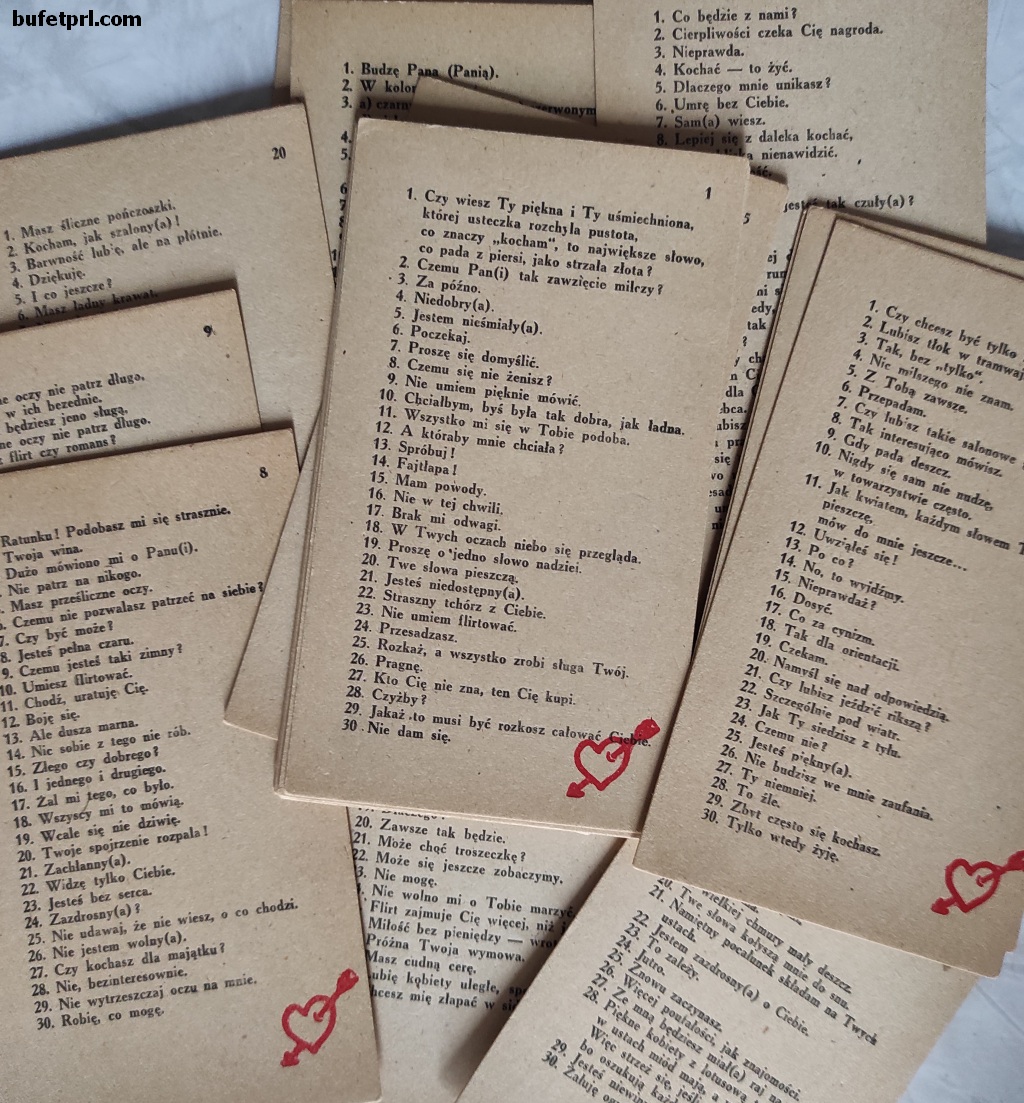 bufetprl.com
1. Budzę Pana (Panią).
2. W kolor
3. a) czarn
erwonym
4.
5.
1. Co będzie z nami?
2. Cierpliwości czeka Cię nagroda.
3. Nieprawda.
4. Kochać — to żyć.
5. Dlaczego mnie unikasz?
6. Umrę bez Ciebie.
7. Sam(a) wiesz.
8. Lepiej się z daleka kochać,
nienawidzić.
jesteś tak czuły(a)?
20
1. Masz śliczne pończoszki.
2. Kocham, jak szalony(a)!
3. Barwność lubię, ale na płótnie.
4. Dziękuję.
5. I co jeszcze?
6. Masz ładny krawat.
9
ne oczy nie patrz długo,
w ich bezednie.
będziesz jeno sługą,
ne oczy nie patrz długo.
flirt czy romans?
8
Ratunku! Podobasz mi się strasznie.
Twoja wina.
Dużo mówiono mi o Panu(i).
Nie patrz na nikogo.
Masz prześliczne oczy.
Czemu nie pozwalasz patrzeć na siebie?
7. Czy być może?
8. Jesteś pełna czaru.
9. Czemu jesteś taki zimny?
10. Umiesz flirtować.
11. Chodź, uratuję Cię.
12. Boję się.
13. Ale dusza marna.
14. Nic sobie z tego nie rób.
15. Złego czy dobrego?
16. I jednego i drugiego.
17. Żal mi tego, co było.
18. Wszyscy mi to mówią.
19. Wcale się nie dziwię.
20. Twoje spojrzenie rozpala!
21. Zachłanny(a).
22. Widzę tylko Ciebie.
23. Jesteś bez serca.
24. Zazdrosny(a)?
25. Nie udawaj, że nie wiesz, o co chodzi.
26. Nie jestem wolny(a).
27. Czy kochasz dla majątku?
28. Nie, bezinteresownie.
29. Nie wytrzeszczaj oczu na mnie.
30. Robię, co mogę.
1
1. Czy wiesz Ty piękna i Ty uśmiechniona,
której usteczka rozchyla pustota,
co znaczy „kocham", to największe słowo,
co pada z piersi, jako strzała złota?
2. Czemu Pan(i) tak zawzięcie milczy?
3. Za późno.
4. Niedobry(a).
5. Jestem nieśmiały(a).
6. Poczekaj.
7. Proszę się domyślić.
8. Czemu się nie żenisz?
9. Nie umiem pięknie mówić.
10. Chciałbym, byś była tak dobra, jak ładna.
11. Wszystko mi się w Tobie podoba.
12. A któraby mnie chciała?
13. Spróbuj!
14. Fajtłapa!
15. Mam powody.
16. Nie w tej chwili.
17. Brak mi odwagi.
18. W Twych oczach niebo się przegląda.
19. Proszę o jedno słowo nadziei.
20. Twe słowa pieszczą.
21. Jesteś niedostępny(a).
22. Straszny tchórz z Ciebie.
23. Nie umiem flirtować.
24. Przesadzasz.
25. Rozkaż, a wszystko zrobi sługa Twój.
26. Pragnę.
27. Kto Cię nie zna, ten Cię kupi.
28. Czyżby?
29. Jakaż to musi być rozkosz całować Ciebie.
30. Nie dam się.
5
1. Czy chcesz być tylko
2. Lubisz tłok w tramwaj
3. Tak, bez „tylko".
4. Nic milszego nie znam.
5. Z Tobą zawsze.
6. Przepadam.
7. Czy lubisz takie salonowe
8. Tak interesująco mówisz.
9. Gdy pada deszcz.
10. Nigdy się sam nie nudzę,
w towarzystwie często.
11. Jak kwiatem, każdym słowem T
pieszczę,
mów do mnie jeszcze...
12. Uwziąłeś się!
13. Po co?
14. No, to wyjdźmy.
15. Nieprawdaż?
16. Dosyć.
17. Co za cynizm.
18. Tak dla orientacji.
19. Czekam.
20. Namyśl się nad odpowiedzią.
21. Czy lubisz jeździć rikszą?
22. Szczególnie pod wiatr.
23. Jak Ty siedzisz z tyłu.
24. Czemu nie?
25. Jesteś piękny(a).
26. Nie budzisz we mnie zaufania.
27. Ty niemniej.
28. To źle.
29. Zbyt często się kochasz.
30. Tylko wtedy żyję.
20. Zawsze tak będzie.
21. Może chęć troszeczkę?
22. Może się jeszcze zobaczymy.
23. Nie mogę.
Nie wolno mi o Tobie marzyć.
Flirt zajmuje Cię więcej, niż
Miłość bez pieniędzy — wrot
Próżna Twoja wymowa.
Masz cudną cerę.
ubię kobiety uległe, sp
hcesz mię złapać w si
wielkiej chmury mały deszcz.
20. Twe słowa kołyszą mnie do snu.
21. Namiętny pocałunek składam na Twych
ustach.
22. Jestem zazdrosny(a) o Ciebie.
23. To zależy.
24. Jutro.
25. Znowu zaczynasz.
26. Więcej poufałości, jak znajomości.
27. Ze mną będziesz miał(a) raj na
28. Piękne kobiety z lotusową
w ustach miód mają, a
Więc strzeż się, jeśli
bo oszukują każd
29. Jesteś niewin
30. Żałuję og